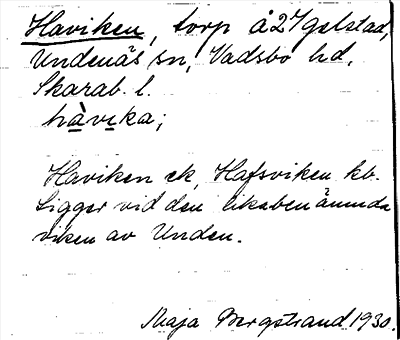 Haviken, torp å 2 Igelstad,
Undenäs sn, Vadsbo hd,
Skarab. l.
hàvıka;
Haviken ek, Hafsviken kb.
Ligger vid den likabenämnda
viken av Unden.
Maja Bergstrand 1930.